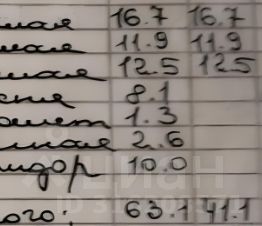 ная 16.7 16.7
ная 11.9 11.9
ная 12.5 12.5
8.1
1.3
2.6
идор 10.0
ого: 63.1 41.1
циан